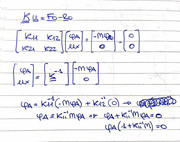 K u = F0 - R0
[K11 K12; K21 K22] [φA; ux] = [-mφA; 0] - [0; 0]
[φA; ux] = [K^-1] [-mφA; 0]
φA = K11^-1 (-mφA) + K12^-1 (0) →
φA = K11^-1 mφA → φA + K11^-1 mφA = 0
φA (1 + K11^-1 m) = 0